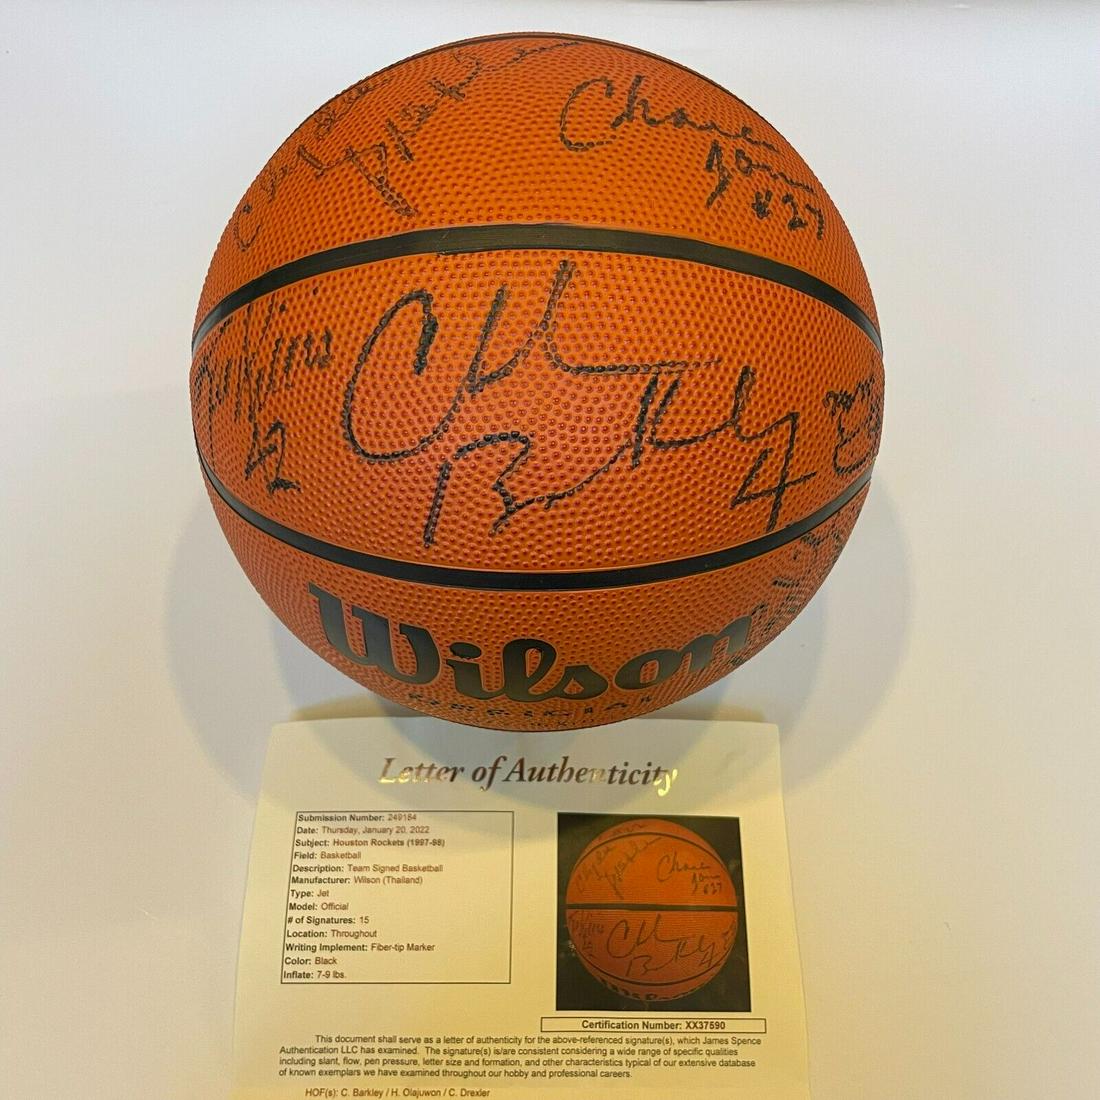 Charles
Jones
#27
Ch Barkley
4
Wilson
Letter of Authenticity
Submission Number: 249184
Date: Thursday, January 20, 2022
Subject: Houston Rockets (1997-98)
Field: Basketball
Description: Team Signed Basketball
Manufacturer: Wilson (Thailand)
Type: Jet
Model: Official
# of Signatures: 15
Location: Throughout
Writing Implement: Fiber-tip Marker
Color: Black
Inflate: 7-9 lbs.
Wilson
Certification Number: XX37590
This document shall serve as a letter of authenticity for the above-referenced signature(s), which James Spence
Authentication LLC has examined. The signature(s) is/are consistent considering a wide range of specific qualities
including slant, flow, pen pressure, letter size and formation, and other characteristics typical of our extensive database
of known exemplars we have examined throughout our hobby and professional careers.
HOF(s): C. Barkley / H. Olajuwon / C. Drexler